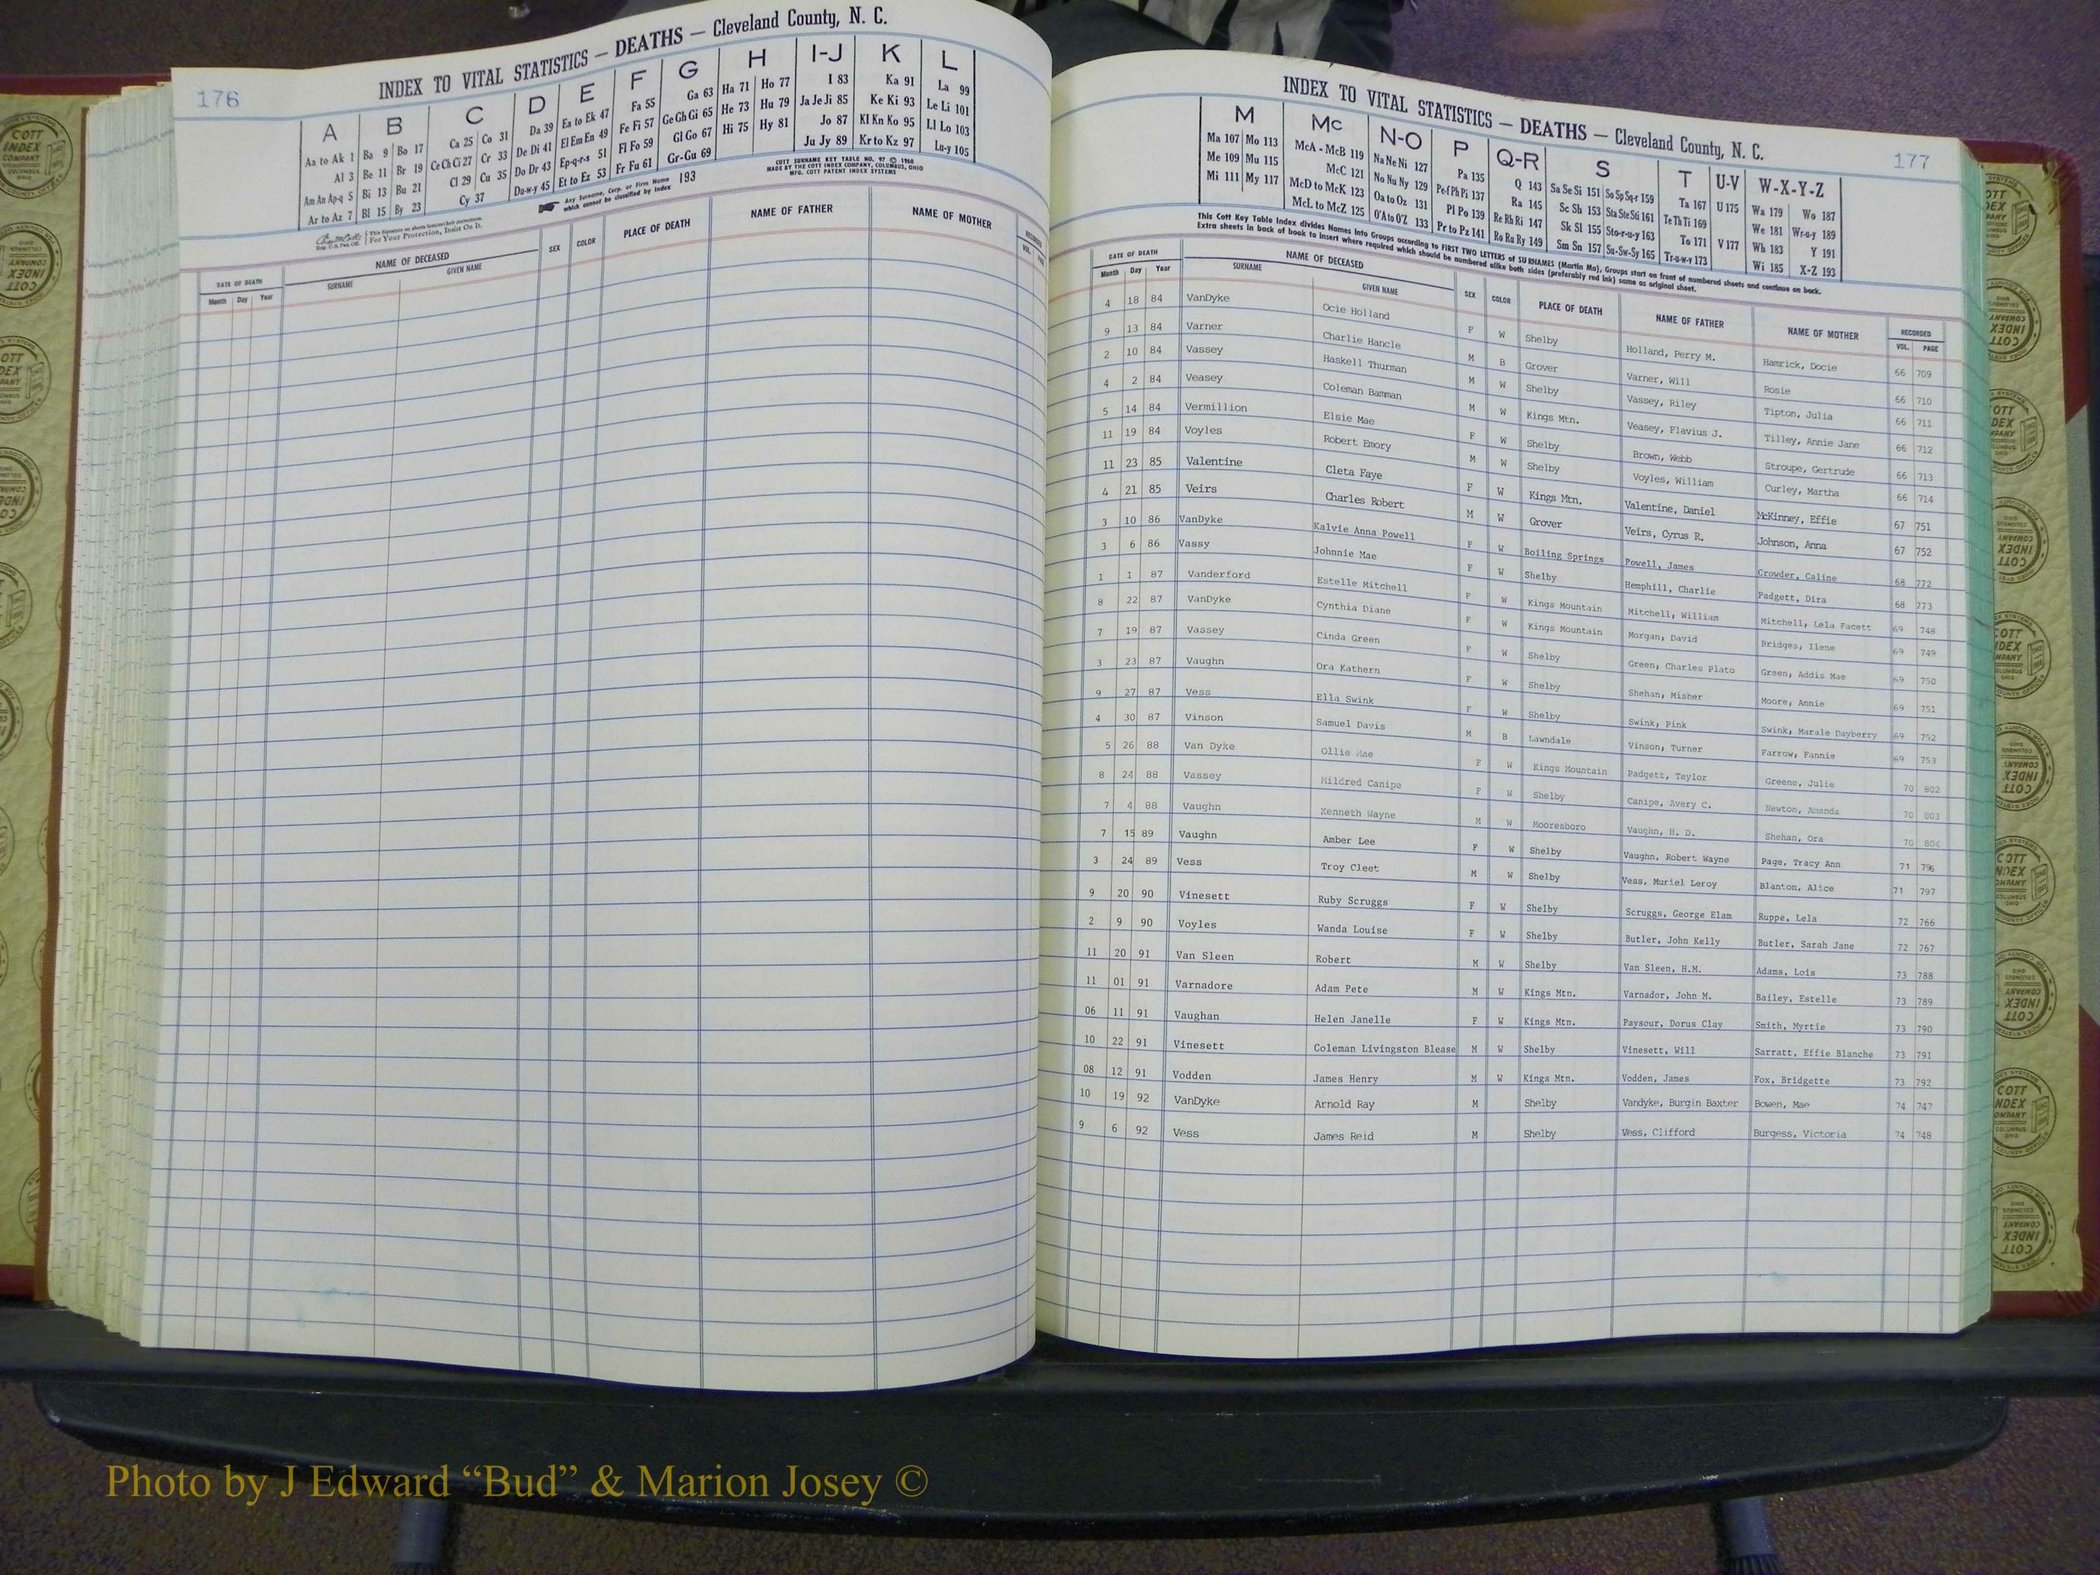 176
INDEX TO VITAL STATISTICS — DEATHS — Cleveland County, N. C.
A B C D E F G H I-J K L
Aa to Ak 1 Ba 9 Bo 17 Ca 25 Co 31 Da 39 Ea to Ek 47 Fa 55 Ga 63 Ha 71 Ho 77 I 83 Ka 91 La 99
Al 3 Be 11 Br 19 Ce Ch Ci 27 Cr 33 De Di 41 El Em En 49 Fe Fi 57 Ge Gh Gi 65 He 73 Hu 79 Ja Je Ji 85 Ke Ki 93 Le Li 101
Am An Ap-q 5 Bi 13 Bu 21 Cl 29 Cu 35 Do Dr 43 Ep-q-r-s 51 Fl Fo 59 Gl Go 67 Hi 75 Hy 81 Jo 87 Kl Kn Ko 95 Ll Lo 103
Ar to Az 7 Bl 15 By 23 Cy 37 Du-w-y 45 Et to Ez 53 Fr Fu 61 Gr-Gu 69 Ju Jy 89 Kr to Kz 97 Lu-y 105
Any Surname, Corp. or Firm Name which cannot be classified by Index 193
COTT SURNAME KEY TABLE NO. 97 © 1960
MADE BY THE COTT INDEX COMPANY, COLUMBUS, OHIO
MFG. COTT PATENT INDEX SYSTEMS
For Your Protection, Insist On It.
DATE OF DEATH NAME OF DECEASED SEX COLOR PLACE OF DEATH NAME OF FATHER NAME OF MOTHER RECORDED
Month Day Year SURNAME GIVEN NAME VOL. PAGE
177
INDEX TO VITAL STATISTICS — DEATHS — Cleveland County, N. C.
M Mc N-O P Q-R S T U-V W-X-Y-Z
Ma 107 Mo 113 McA - McB 119 Na Ne Ni 127 Pa 135 Q 143 Sa Se Si 151 So Sp Sq-r 159 Ta 167 U 175 Wa 179 Wo 187
Me 109 Mu 115 McC 121 No Nu Ny 129 Pe-f Ph Pi 137 Ra 145 Sc Sh 153 Sta Ste Sti 161 Te Th Ti 169 We 181 Wr-u-y 189
Mi 111 My 117 McD to McK 123 Oa to Oz 131 Pl Po 139 Re Rh Ri 147 Sk Sl 155 Sto-r-u-y 163 To 171 V 177 Wh 183 Y 191
McL to McZ 125 O'A to O'Z 133 Pr to Pz 141 Ro Ru Ry 149 Sm Sn 157 Su-Sw-Sy 165 Tr-u-w-y 173 Wi 185 X-Z 193
This Cott Key Table Index divides Names into Groups according to FIRST TWO LETTERS of SURNAMES (Martin Ma), Groups start on front of numbered sheets and continue on back.
Extra sheets in back of book to insert where required which should be numbered alike both sides (preferably red ink) same as original sheet.
DATE OF DEATH NAME OF DECEASED SEX COLOR PLACE OF DEATH NAME OF FATHER NAME OF MOTHER RECORDED
Month Day Year SURNAME GIVEN NAME VOL. PAGE
4 18 84 VanDyke Ocie Holland F W Shelby Holland, Perry M. Hamrick, Docie 66 709
9 13 84 Varner Charlie Hancle M B Grover Varner, Will Rosie 66 710
2 10 84 Vassey Haskell Thurman M W Shelby Vassey, Riley Tipton, Julia 66 711
4 2 84 Veasey Coleman Bamman M W Kings Mtn. Veasey, Flavius J. Tilley, Annie Jane 66 712
5 14 84 Vermillion Elsie Mae F W Shelby Brown, Webb Stroupe, Gertrude 66 713
11 19 84 Voyles Robert Emory M W Shelby Voyles, William Curley, Martha 66 714
11 23 85 Valentine Cleta Faye F W Kings Mtn. Valentine, Daniel McKinney, Effie 67 751
4 21 85 Veirs Charles Robert M W Grover Veirs, Cyrus R. Johnson, Anna 67 752
3 10 86 VanDyke Kalvie Anna Powell F W Boiling Springs Powell, James Crowder, Caline 68 772
3 6 86 Vassy Johnnie Mae F W Shelby Hemphill, Charlie Padgett, Dira 68 773
1 1 87 Vanderford Estelle Mitchell F W Kings Mountain Mitchell, William Mitchell, Lela Facett 69 748
8 22 87 VanDyke Cynthia Diane F W Kings Mountain Morgan, David Bridges, Ilene 69 749
7 19 87 Vassey Cinda Green F W Shelby Green, Charles Plato Green, Addis Mae 69 750
3 23 87 Vaughn Ora Kathern F W Shelby Shehan, Misher Moore, Annie 69 751
9 27 87 Vess Ella Swink F W Shelby Swink, Pink Swink, Marale Dayberry 69 752
4 30 87 Vinson Samuel Davis M B Lawndale Vinson, Turner Farrow, Fannie 69 753
5 26 88 Van Dyke Ollie Mae F W Kings Mountain Padgett, Taylor Greene, Julie 70 802
8 24 88 Vassey Mildred Canipe F W Shelby Canipe, Avery C. Newton, Amanda 70 803
7 4 88 Vaughn Kenneth Wayne M W Mooresboro Vaughn, H. D. Shehan, Ora 70 804
7 15 89 Vaughn Amber Lee F W Shelby Vaughn, Robert Wayne Page, Tracy Ann 71 796
3 24 89 Vess Troy Cleet M W Shelby Vess, Muriel Leroy Blanton, Alice 71 797
9 20 90 Vinesett Ruby Scruggs F W Shelby Scruggs, George Elam Ruppe, Lela 72 766
2 9 90 Voyles Wanda Louise F W Shelby Butler, John Kelly Butler, Sarah Jane 72 767
11 20 91 Van Sleen Robert M W Shelby Van Sleen, H.M. Adams, Lois 73 788
11 01 91 Varnadore Adam Pete M W Kings Mtn. Varnador, John M. Bailey, Estelle 73 789
06 11 91 Vaughan Helen Janelle F W Kings Mtn. Paysour, Dorus Clay Smith, Myrtie 73 790
10 22 91 Vinesett Coleman Livingston Blease M W Shelby Vinesett, Will Sarratt, Effie Blanche 73 791
08 12 91 Vodden James Henry M W Kings Mtn. Vodden, James Fox, Bridgette 73 792
10 19 92 VanDyke Arnold Ray M Shelby Vandyke, Burgin Baxter Bowen, Mae 74 747
9 6 92 Vess James Reid M Shelby Vess, Clifford Burgess, Victoria 74 748
Photo by J Edward “Bud” & Marion Josey ©